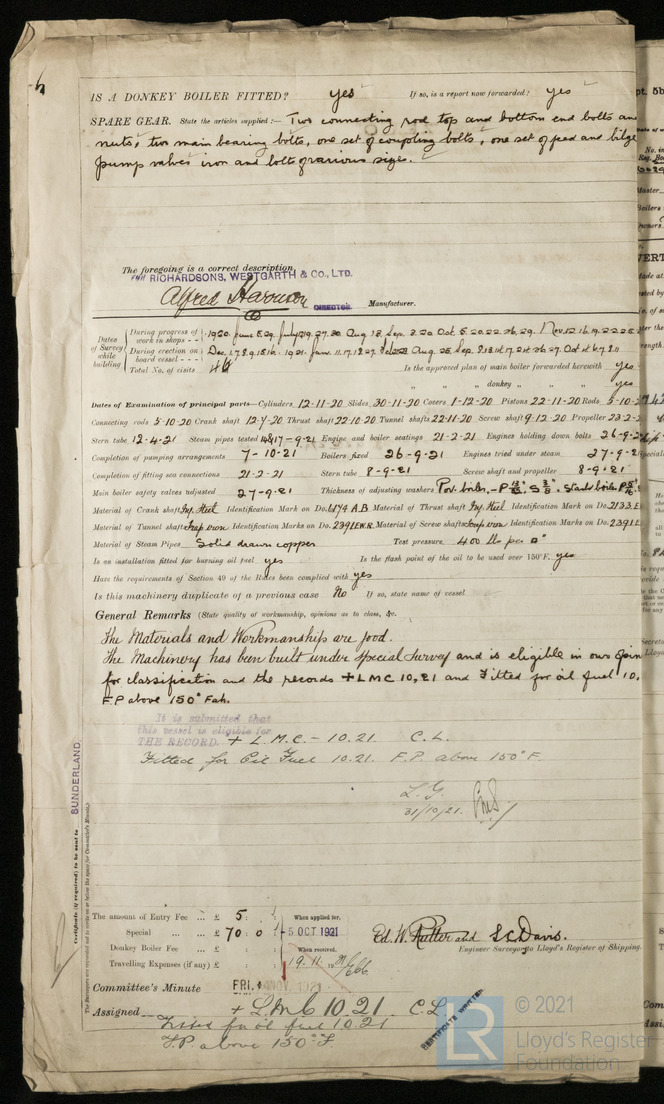 IS A DONKEY BOILER FITTED? yes If so, is a report now forwarded? yes
SPARE GEAR. State the articles supplied:— Two connecting rod top and bottom end bolts an
nuts, two main bearing bolts, one set of coupling bolts, one set of feed and bilge
pump valves iron and bolts of various sizes.
The foregoing is a correct description
FOR RICHARDSONS, WESTGARTH & CO., LTD.
Alfred Harrison DIRECTOR Manufacturer.
Dates of Survey while building
During progress of work in shops - - 1920. June 5.29. July 19.27.30. Aug 18. Sep. 3.20 Oct 5.20.22.26.29. Nov. 12.16.19.22.25
During erection on board vessel - - - Dec. 1921. Jan. 11.17.18.27. Aug 25. Sep.
Total No. of visits Is the approved plan of main boiler forwarded herewith yes
" " " donkey " " " yes
Dates of Examination of principal parts—Cylinders 12-11-20 Slides 30-11-20 Covers 1-12-20 Pistons 22-11-20 Rods 5-10-
Connecting rods 5-10-20 Crank shaft 12-7-20 Thrust shaft 22-10-20 Tunnel shafts 22-11-20 Screw shaft 9-12-20 Propeller 23-2-
Stern tube 12-4-21 Steam pipes tested 17-9-21 Engine and boiler seatings 21-2-21 Engines holding down bolts 26-9-2
Completion of pumping arrangements 7-10-21 Boilers fixed 26-9-21 Engines tried under steam 27-9-
Completion of fitting sea connections 21-2-21 Stern tube 8-9-21 Screw shaft and propeller 8-9-21
Main boiler safety valves adjusted 27-9-21 Thickness of adjusting washers
Material of Crank shaft Ing. Steel Identification Mark on Do. 6174 A.B Material of Thrust shaft Ing. Steel Identification Mark on Do. 2133.E
Material of Tunnel shafts Scrap iron Identification Marks on Do. 2391 E.W.R. Material of Screw shafts Scrap iron Identification Marks on Do. 2391
Material of Steam Pipes Solid drawn copper Test pressure 400 lbs per □"
Is an installation fitted for burning oil fuel yes Is the flash point of the oil to be used over 150°F. yes
Have the requirements of Section 49 of the Rules been complied with yes
Is this machinery duplicate of a previous case No If so, state name of vessel
General Remarks (State quality of workmanship, opinions as to class, &c.
The Materials and Workmanship are good.
The Machinery has been built under special survey and is eligible in our opin
for classification and the records + LMC 10,21 and Fitted for oil fuel 10,
F.P above 150° Fah.
It is submitted that
this vessel is eligible for
THE RECORD. + L.M.C. - 10.21. C.L.
Fitted for Oil Fuel 10.21. F.P. above 150°F.
31/10/21.
Certificate (if required) to be sent to SUNDERLAND.
The Surveyors are requested not to write on or below the space for Committee's Minute.
The amount of Entry Fee ... £ 5 : : When applied for,
Special ... £ 70 : 0 : 5 OCT 1921
Donkey Boiler Fee ... £ : : When received,
Travelling Expenses (if any) £ : : 19.11.1921
Ed. W. Rutter and S.C. Davis.
Engineer Surveyors to Lloyd's Register of Shipping.
Committee's Minute FRI. 4 NOV. 1921
Assigned + L.M.C 10.21 C.L.
Fitted for oil fuel 10.21
F.P. above 150°F.
CERTIFICATE WRITTEN
LR © 2021
Lloyd's Register
Foundation